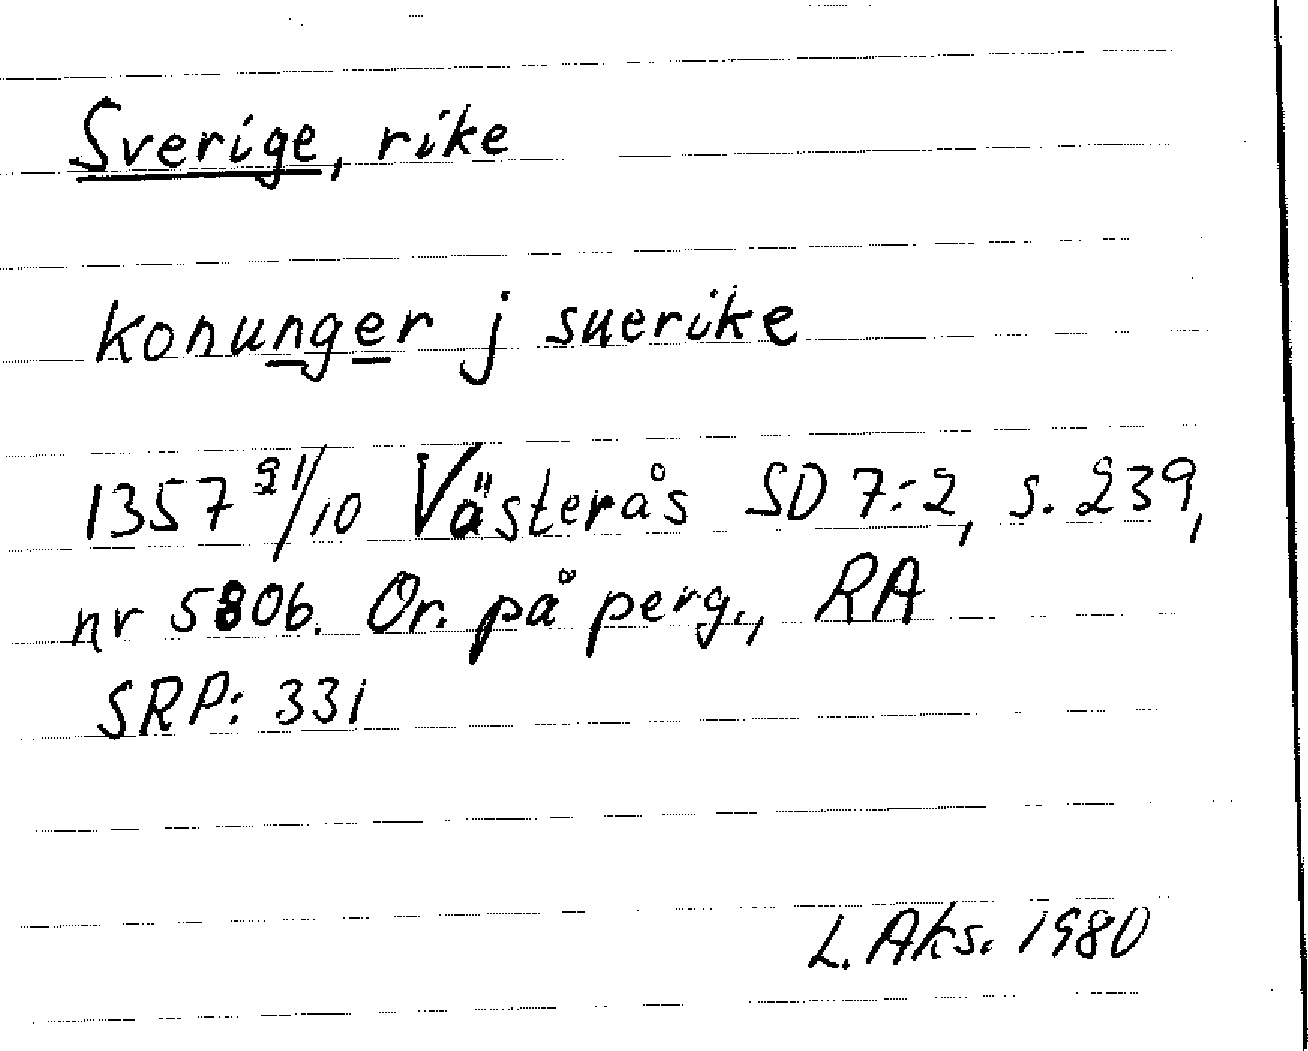 Sverige, rike
konunger j suerike
1357 21/10 Västerås SD 7:2, s. 239,
nr 5806. Or. på perg., RA
SRP: 331
L. Aks. 1980